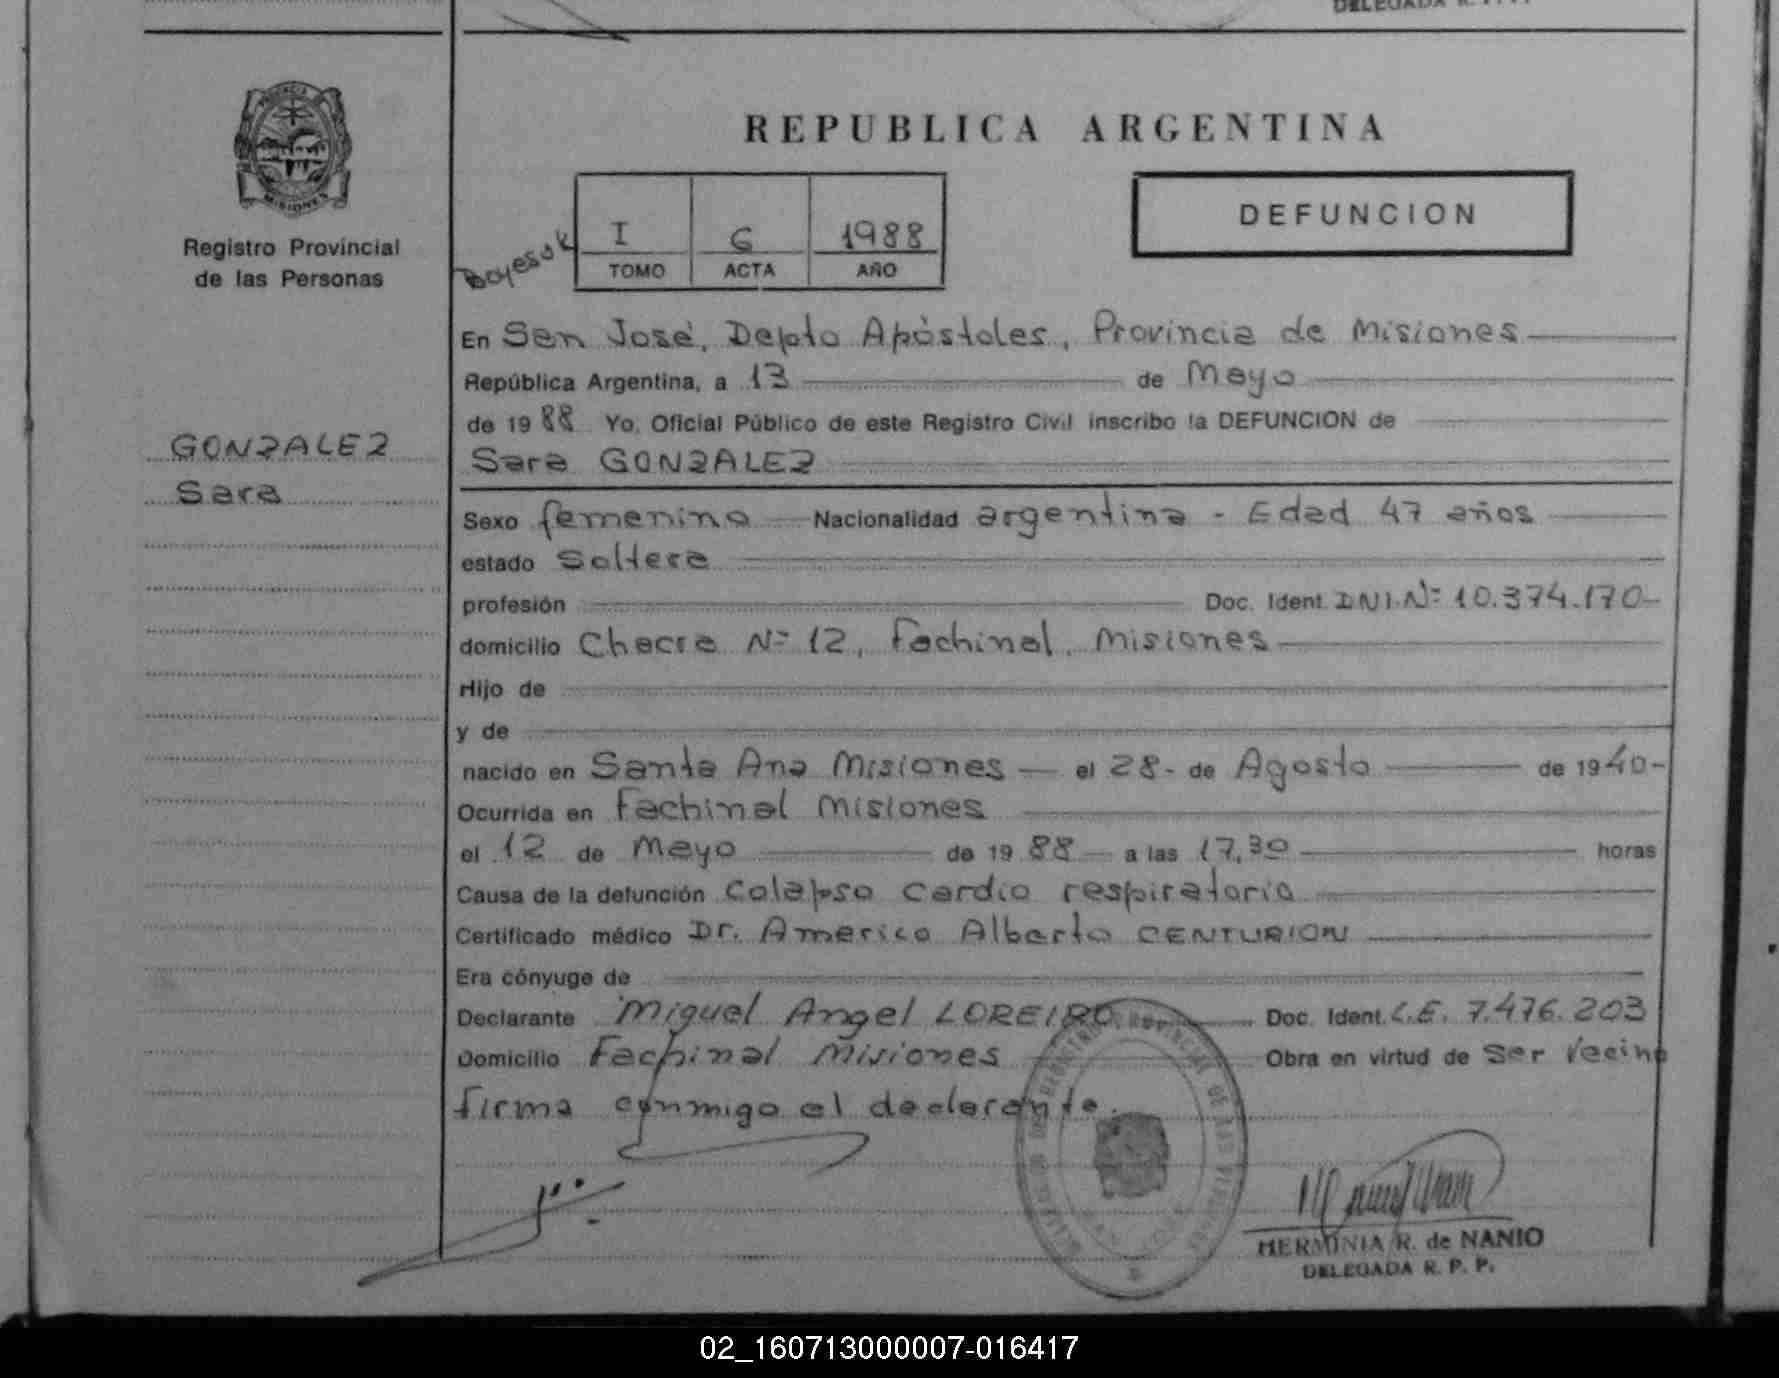 DELEGADA R. P. P.
PROVINCIA
MISIONES
Registro Provincial
de las Personas
GONZALEZ
Sara
REPUBLICA ARGENTINA
DEFUNCION
I 6 1988
TOMO ACTA AÑO
En San José, Depto Apóstoles, Provincia de Misiones
República Argentina, a 13 de Mayo
de 1988 Yo, Oficial Público de este Registro Civil inscribo la DEFUNCION de
Sara GONZALEZ
Sexo femenino Nacionalidad argentina - Edad 47 años
estado Soltera
profesión Doc. Ident. D.N.I. Nº 10.374.170-
domicilio Chacra Nº 12, Fachinal, Misiones
Hijo de
y de
nacido en Santa Ana Misiones — el 28- de Agosto de 1940-
Ocurrida en Fachinal Misiones
el 12 de Mayo de 1988 a las 17,30 horas
Causa de la defunción Colapso cardio respiratorio
Certificado médico Dr. Americo Alberto CENTURION
Era cónyuge de
Declarante Miguel Angel LOREIRO Doc. Ident. L.E. 7.476.203
Domicilio Fachinal Misiones Obra en virtud de Ser vecino
firma conmigo el declarante.
HERMINIA R. de NANIO
DELEGADA R. P. P.
02_160713000007-016417